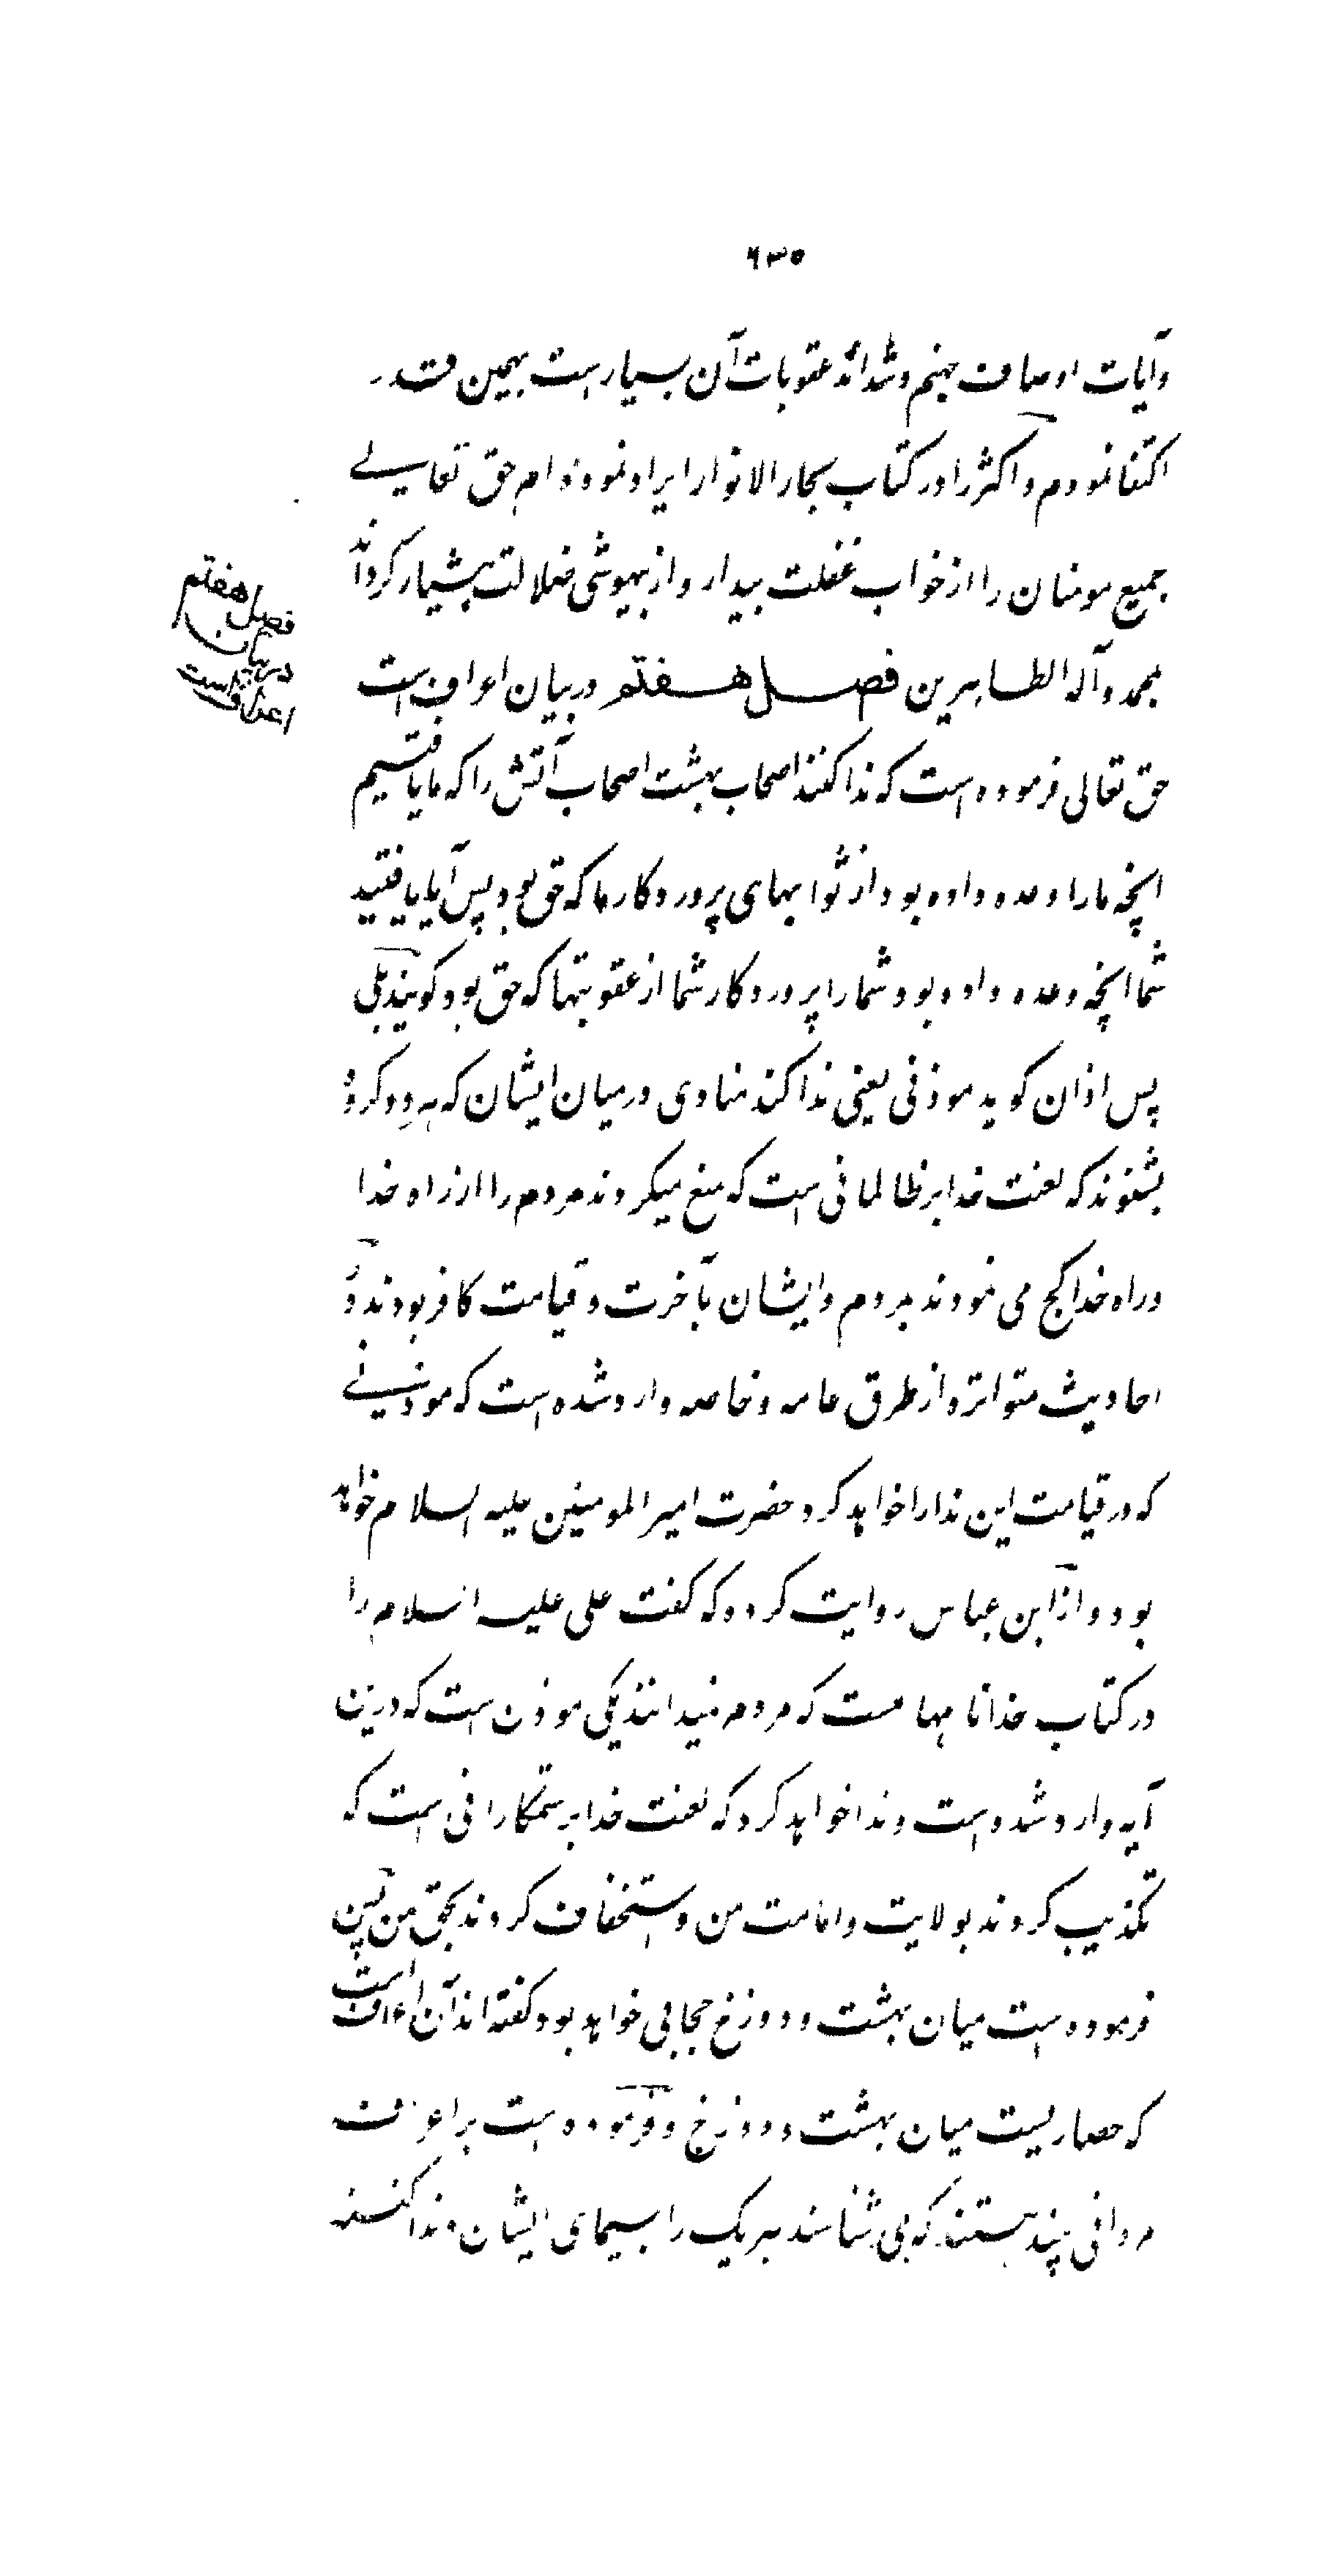 ٦٣٥
وآیات اوصاف جهنم وشدائد عقوبات آن بسیار است بهمین قدر
اکتفا نمودم و اکثر را در کتاب بحار الانوار ایراد نموده ام حق تعالے
جمیع مومنان را از خواب غفلت بیدار و از بیهوشی ضلالت هشیار کرداند
بمحمد وآله الطاهرین فصل هفتم در بیان اعراف است
فصل هفتم
در بیان
اعراف است
حق تعالی فرموده است که ندا کنند اصحاب بهشت اصحاب آتش را که ما یافتیم
انچه ما را وعده داده بود از ثوابهای پروردکار ما که حق بود پس آیا یافتید
شما انچه وعده داده بود شما را پروردکار شما از عقوبتها که حق بود کویند بلی
پس اذان کوید موذنی یعنی ندا کند منادی درمیان ایشان که هر دو کروه
بشنوند که لعنت خدا بر ظالمانی است که منع میکردند مردم را از راه خدا
وراه خدا کج می نمودند بمردم وایشان بآخرت و قیامت کافر بودند و در
احادیث متواتره از طرق عامه و خاصه وارد شده است که موذنے
که در قیامت این ندا را خواهد کرد حضرت امیر المومنین علیه السلام خواهد
بود و از ابن عباس روایت کرده که کفت علی علیه السلام را
در کتاب خدا نامها هست که مردم نمیدانند یکی موذن است که درین
آیه وارد شده است و ندا خواهد کرد که لعنت خدا بر ستمکارانی است که
تکذیب کردند بولایت و امامت من و استخفاف کردند بحق من پس
فرموده است میان بهشت و دوزخ حجابی خواهد بود کفته اند آن اعراف است
که حصاریست میان بهشت و دوزخ و فرموده است بر اعراف
مردانی چند هستند که می شناسند هر یک را بسیمای ایشان و ندا کنند